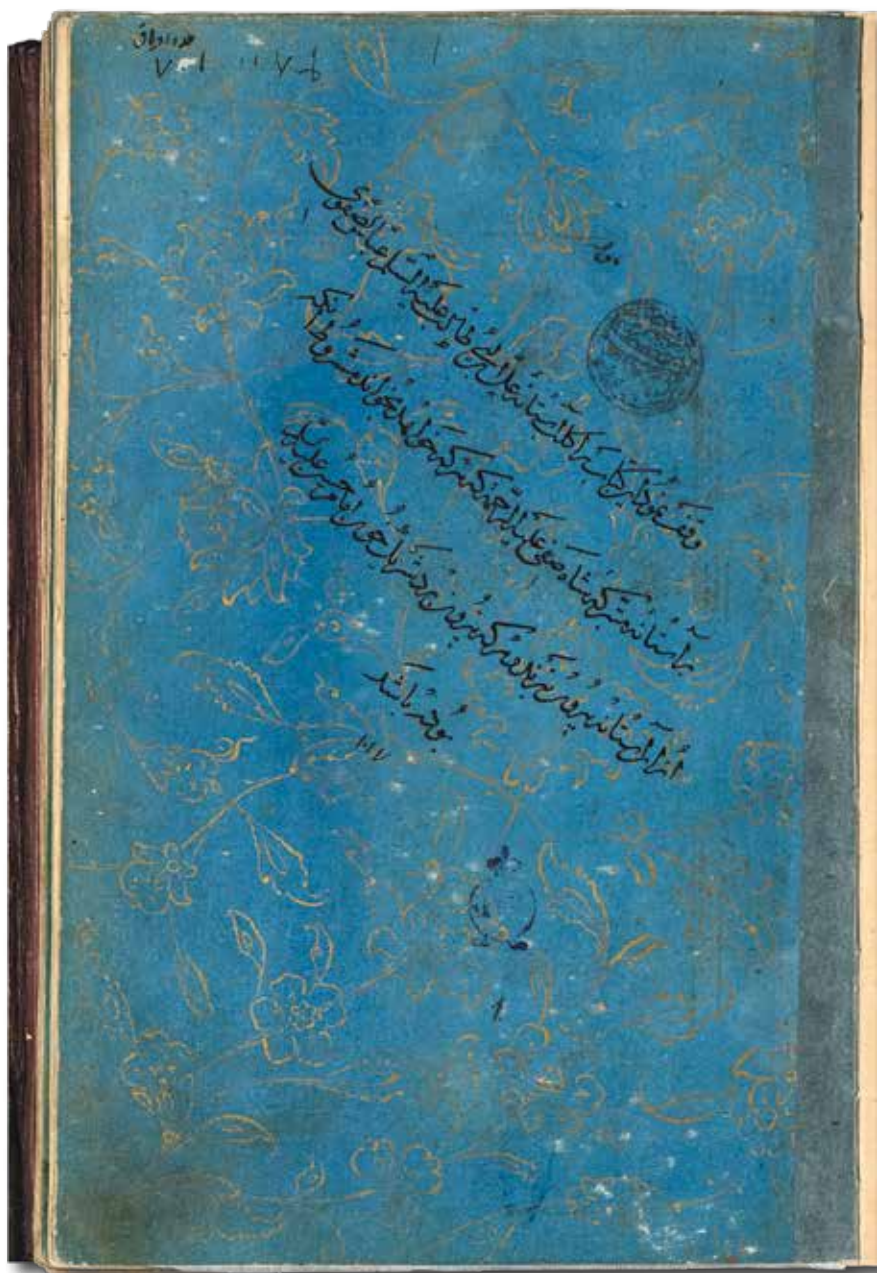 عدد اوراق
وقف نمود این کتاب را کلب آستانه علی بن ابی طالب علیه السلم عباس الصفوی
بر آستانه متبرکه شاه صفی علیه الرحمه که هر که خواهد بخواند مشروط آنکه
از آن آستانه بیرون نبرند و هر که بیرون برد شریک خون امام حسین علیه السلم
بوده باشد
۱۰۱۷